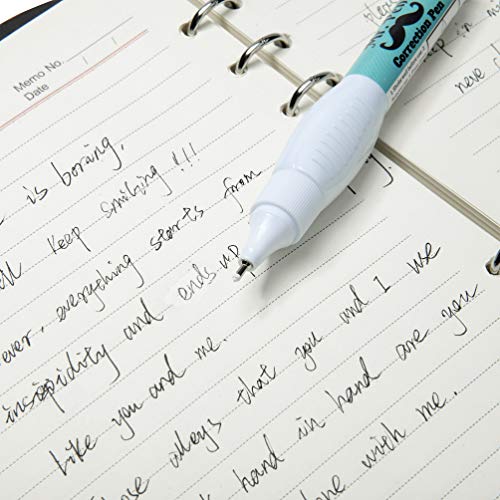 Memo No.
Date
is boring,
keep smiling!!!
ever, everything starts from
insipidity and ends up
Like you and me.
alleys that you and I we
hand in hand are you
with me.
Correction Pen
please
in m
never c